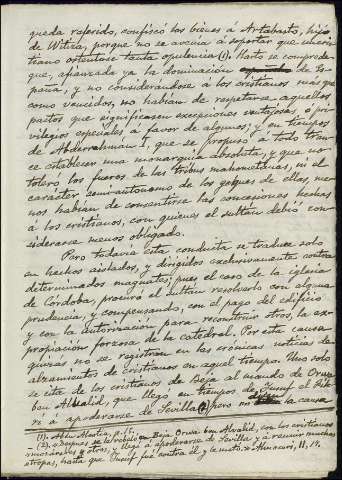 queda referido, confiscó los bienes á Artabasto, hijo
de Witiza, porque no se avenia á soportar que un cris-
tiano ostentase tanta opulencia (1). Harto se comprende
que, afianzada ya la dominación de Es-
paña, y no considerándose á los cristianos más que
como vencidos, no habían de respetarse aquellos
pactos que significasen excepciones ventajosas, ó pri-
vilegios especiales á favor de algunos; y en tiempos
de Abderrahman I, que se propuso á todo tran-
ce establecer una monarquía absoluta, y que no
toleró los fueros de las tribus mahometanas, ni el
carácter semi-autónomo de los jeques de ellas, me-
nos habían de consentirse las concesiones hechas
á los cristianos, con quienes el sultán debió con-
siderarse menos obligado.
Pero todavía esta conducta se traduce solo
en hechos aislados, y dirigidos exclusivamente contra
determinados magnates; pues el caso de la iglesia
de Córdoba, procuró el sultán resolverlo con alguna
prudencia, y compensando, con el pago del edificio
y con la autorización para reconstruir otros, la ex-
propiación forzosa de la catedral. Por esta causa
quizás no se registran en las crónicas noticias de
alzamientos de cristianos en aquel tiempo. Uno solo
se cita de los cristianos de Beja al mando de Orwa
ben Alualid, que llegó en tiempos de Jusuf el Fih-
rí á apoderarse de Sevilla (2), pero no la causa
(1). Abdu
(2). «Después se le rebeló en Beja Orwa ben Alvalid, con los cristianos
y otros, y llegó á apoderarse de Sevilla y á reunir muchas
tropas, hasta que Jusuf fué contra él y lo mató.» Almacari, II, 17.